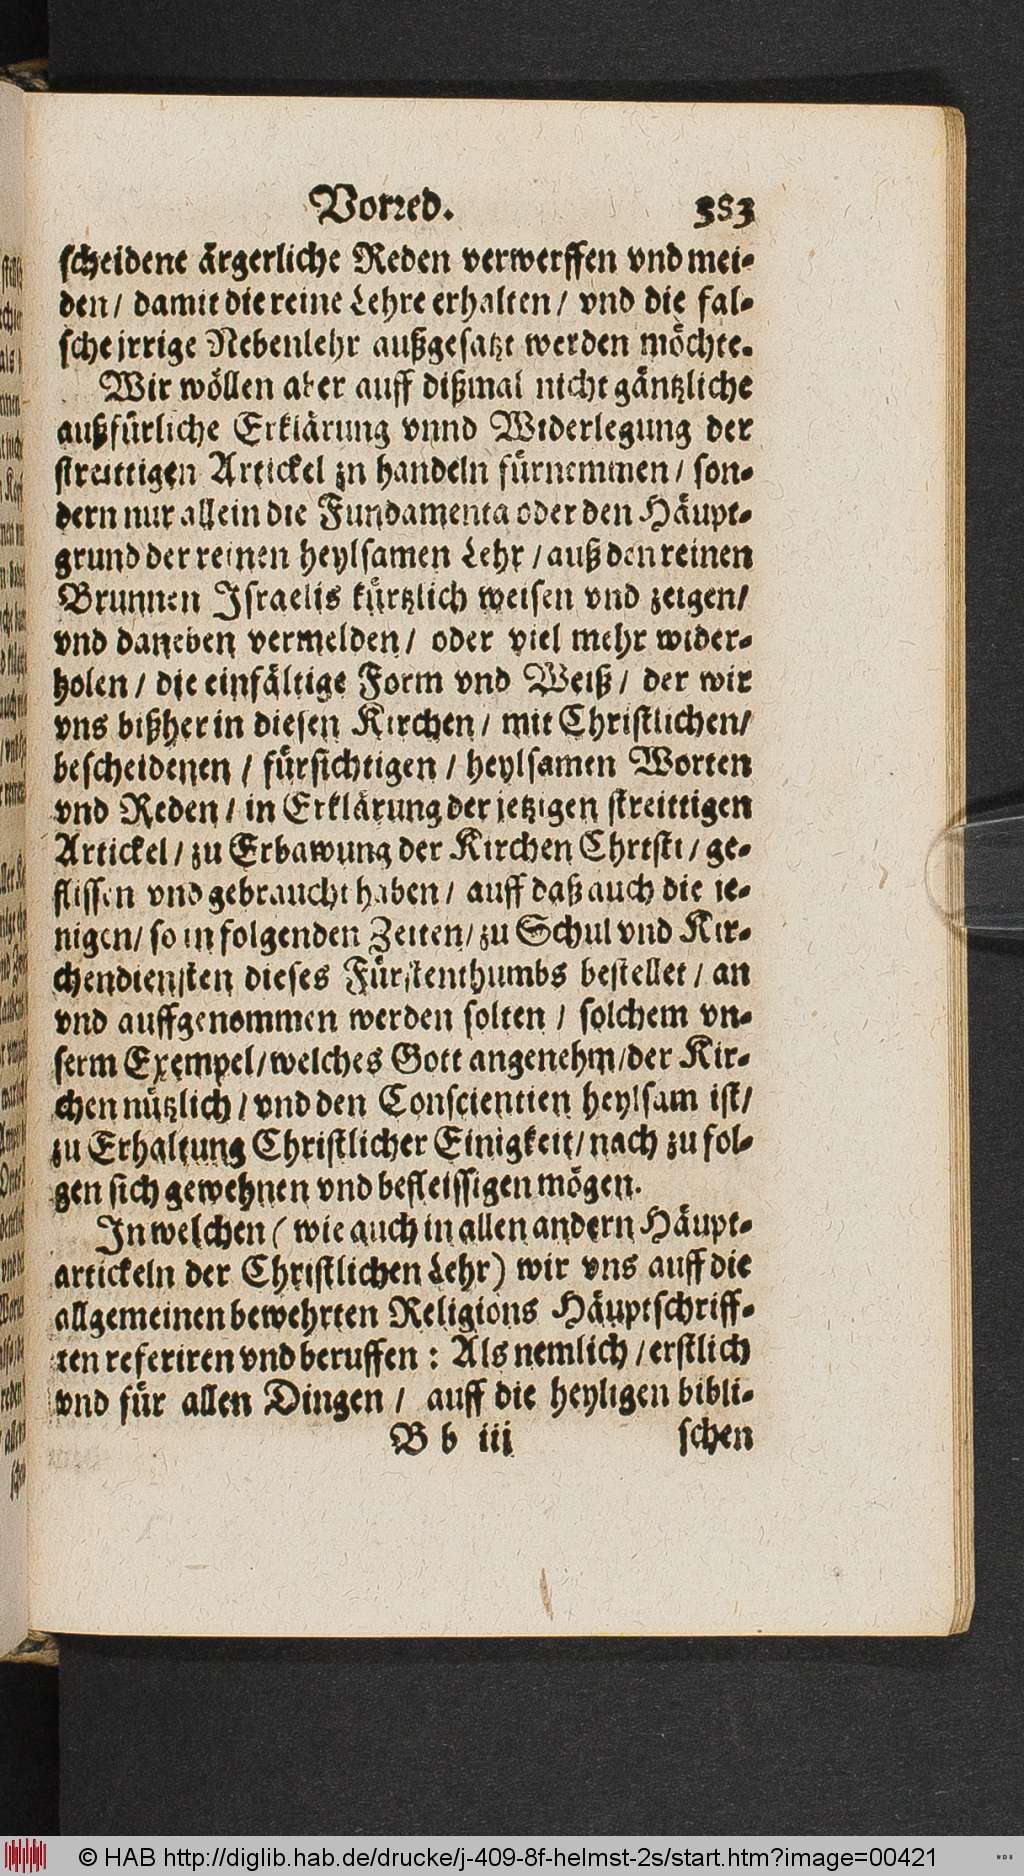 Vorred. 383
scheidene ärgerliche Reden verwerffen vnd mei-
den / damit die reine Lehre erhalten / vnd die fal-
sche jrrige Nebenlehr außgesatzt werden möchte.
Wir wöllen aber auff dißmal nicht gäntzliche
außfürliche Erklärung vnnd Widerlegung der
streittigen Artickel zn handeln fürnemmen / son-
dern nur allein die Fundamenta oder den Häupt-
grund der reinen heylsamen Lehr / auß den reinen
Brunnen Israelis kürtzlich weisen vnd zeigen /
vnd daneben vermelden / oder viel mehr wider-
holen / die einfältige Form vnd Weiß / der wir
vns bißher in diesen Kirchen / mit Christlichen /
bescheidenen / fürsichtigen / heylsamen Worten
vnd Reden / in Erklärung der jetzigen streittigen
Artickel / zu Erbawung der Kirchen Christi / ge-
flissen vnd gebraucht haben / auff daß auch die je-
nigen / so in folgenden Zeiten / zu Schul vnd Kir-
chendiensten dieses Fürstenthumbs bestellet / an
vnd auffgenommen werden solten / solchem vn-
serm Exempel / welches Gott angenehm / der Kir-
chen nützlich / vnd den Conscientien heylsam ist /
zu Erhaltung Christlicher Einigkeit / nach zu fol-
gen sich gewehnen vnd befleissigen mögen.
In welchen ( wie auch in allen andern Häupt-
artickeln der Christlichen Lehr ) wir vns auff die
allgemeinen bewehrten Religions Häuptschriff-
ten referiren vnd beruffen : Als nemlich / erstlich
vnd für allen Dingen / auff die heyligen bibli-
B b iii schen
© HAB http://diglib.hab.de/drucke/j-409-8f-helmst-2s/start.htm?image=00421